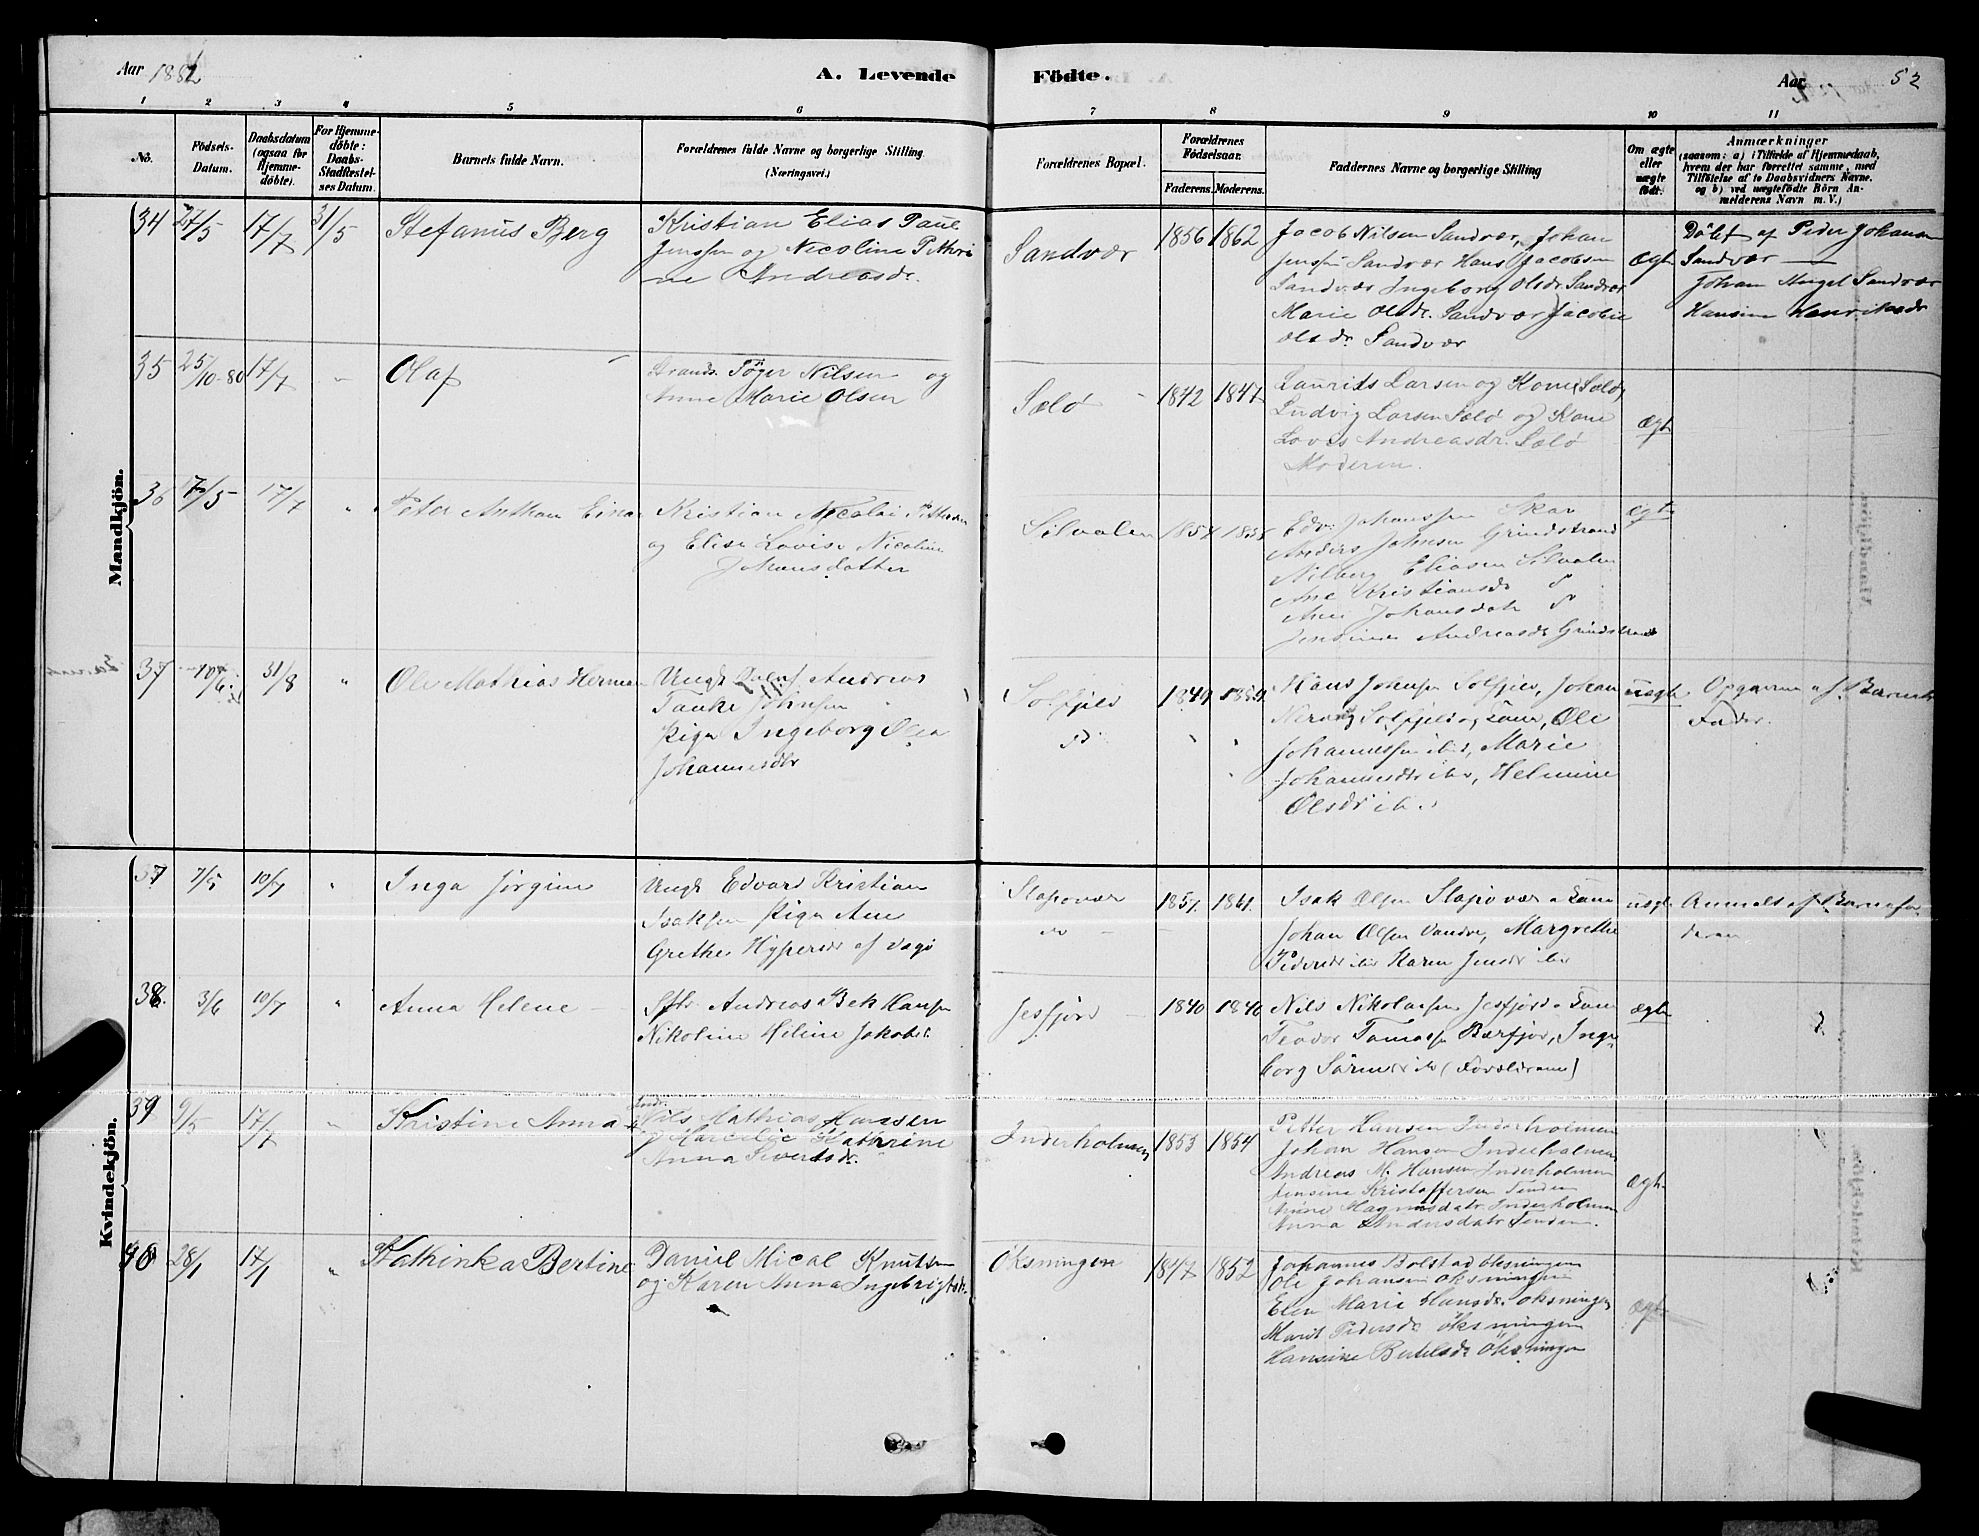 Aar 1882
A. Levende
Födte.
Aar
52
1
2
3
4
5
6
7
8
9
10
11
No.
Födsels-
Datum.
Daabsdatum
(ogsaa for
Hjemme-
döbte).
For Hjemme-
döbte:
Daabs-
Stadfæstel-
ses Datum.
Barnets fulde Navn.
Forældrenes fulde Navne og borgerlige Stilling
(Næringsvei.)
Forældrenes Bopæl.
Forældrenes
Födselsaar.
Faderens.
Moderens.
Faddernes Navne og borgerlige Stilling
Om ægte
eller
uægte
födt.
Anmærkninger
(saasom: a) i Tilfælde af Hjemmedaab,
hvem der har forrettet samme, med
Tilföielse af to Daabsvidners Navne,
og b) ved uægtefödte Börn An-
melderens Navn m. V.)
Mandkjön.
34
27/5
17/7
31/5
Stefanus Berg
Kristian Elias Paul
Jenssen og Nicoline Pethri
ne Andreasdr.
Sandvær
1856
1862
Jacob Nilsen Sandvær, Johan
Jenssen Sandvær Hans Jacobsen
Sandvær Ingeborg Olsdr Sandvær
Marie Olsdr. Sandvær Jacobie
Olsdr. Sandvær
Ægte
Döbt af Peder Johansen
Sandvær —
Johan Angel Sandvær
Hansine Henriksdr
35
25/10-80
17/7
"
Olaf
Strands. Töger Nilsen og
Anne Marie Olsen
Sælö
1842
1847
Laurits Larsen og Kone Sælö,
Ludvig Larsen Sælö og Kone
Lovis Andreasdr. Sælö
Moderen.
Ægte
36
17/5
17/7
"
Peter Anthon Einar
Kristian Nicolai Pettersen
og Elise Lovise Nicoline
Johansdatter
Silvalen
1857
1855
Edv. Johanssen Skar
Anders Johnsen Grindstrand
Nilberg Eliasen Silvalen
Ane Kristiansdr do
Ane Johansdatr do
Jensine Andreasdr Grindstrand
ægte
37
10/6
31/8
"
Ole Mathias Herman
Ungk. Andreas
Tanke Johnsen
Pige Ingeborg Olea
Johannesdtr
Solfjeld
do
1849
1859
Hans Johnsen Solfjeld, Johan
Solfjeld og Kone, Ole
Johannessen ibd, Marie
Johannesdtr ibd, Helmine
Olsdr ib.
uægte
Opgaven af Barnets
Fader.
Kvindekjön.
37
7/5
10/7
"
Inga Jörgine
Ungk Edvard Kristian
Isaksen Pige Ane
Grethe af Vægö
Slapövær
do
1857.
1861.
Isak Olsen Slapövær o Kone
Johan Olsen Vandve, Margrethe
Pedersdr ibd Karen Jensdr ibd
uægte
Anmeldt af Barnefa-
deren
38.
3/6
10/7
"
Anna Helene
Andreas Bek Hansen
Nikoline Heline Jakobs.
Jesfjord
1840
1840
Nils Nikolaisen Jesfjord o Kone
Teodor Tomassen Bærfjor, Inge-
borg Sörensdr ibd (Forældrene)
ægte
39
9/5
17/7
"
Kristine Anna
Indr.
Nils Mathias Hanssen
og Marcelie Kathrine
Anna Sivertsdr.
Inderholmen
1853
1854
Petter Hansen Inderholmen
Johan Hansen Inderholmen
Andreas M. Hansen Inderholmen
Jensine Kristoffersen Tenden
Anne Magnusdatr Inderholmen
Anna Andersdatr Tenden.
Ægte.
40
28/1
17/1
"
Kathinka Bertine
Daniel Mical Knutsen
og Karen Anna Ingebrigtsdr.
Öksningen
1847
1852
Johannes Bolstad Öksningen
Ole Johansen Öksningen
Elen Marie Hansdr Öksningen
Marit Pedersdr Öksningen
Hansine Bertelsdr Öksningen
Ægte